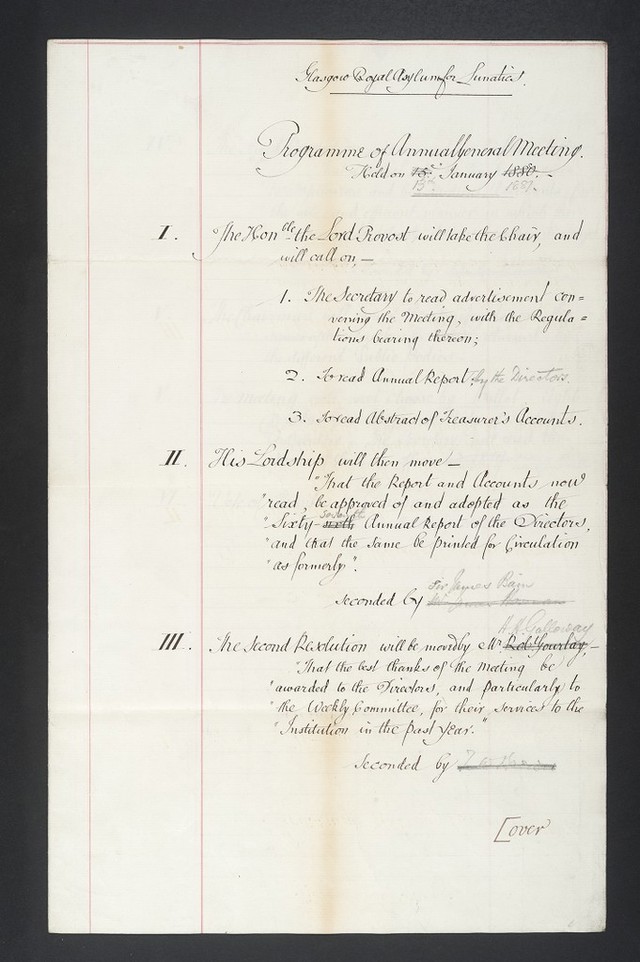 Glasgow Royal Asylum for Lunatics.
Programme of Annual General Meeting.
Held on 15th January 1880.
13th 1881.
I. The Honble the Lord Provost will take the Chair, and
will call on,—
1. The Secretary to read advertisement con=
vening the Meeting, with the Regula=
tions bearing thereon;
2. To read Annual Report by the Directors.
3. To read Abstract of Treasurer's Accounts.
II. His Lordship will then move—
"That the Report and Accounts now
"read, be approved of and adopted as the
seventh
"Sixty-sixth Annual Report of the Directors,
"and that the same be printed for Circulation
"as formerly".
Sir James Bain
seconded by
H. Galloway
III. The Second Resolution will be moved by Mr Robt Gourlay,—
"That the best thanks of the Meeting be
"awarded to the Directors, and particularly to
"the Weekly Committee, for their services to the
"Institution in the past year."
seconded by
[over